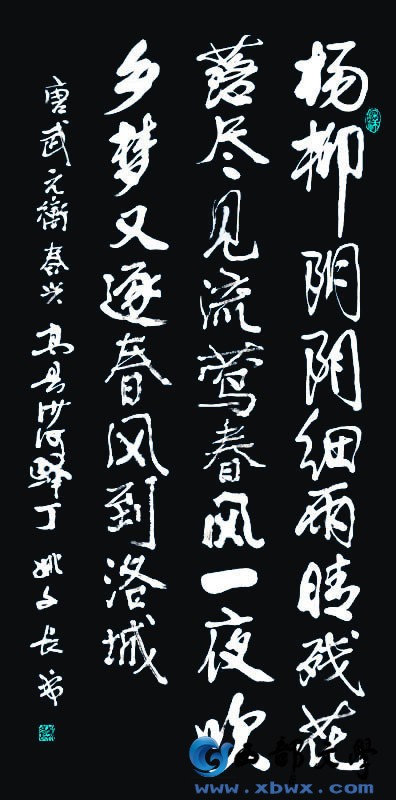 杨柳阴阴细雨晴残花
落尽见流莺春风一夜吹
乡梦又逐春风到洛城
唐武元衡春兴 高县沙河驿丁 姚文长
西部文学
www.xbwx.com